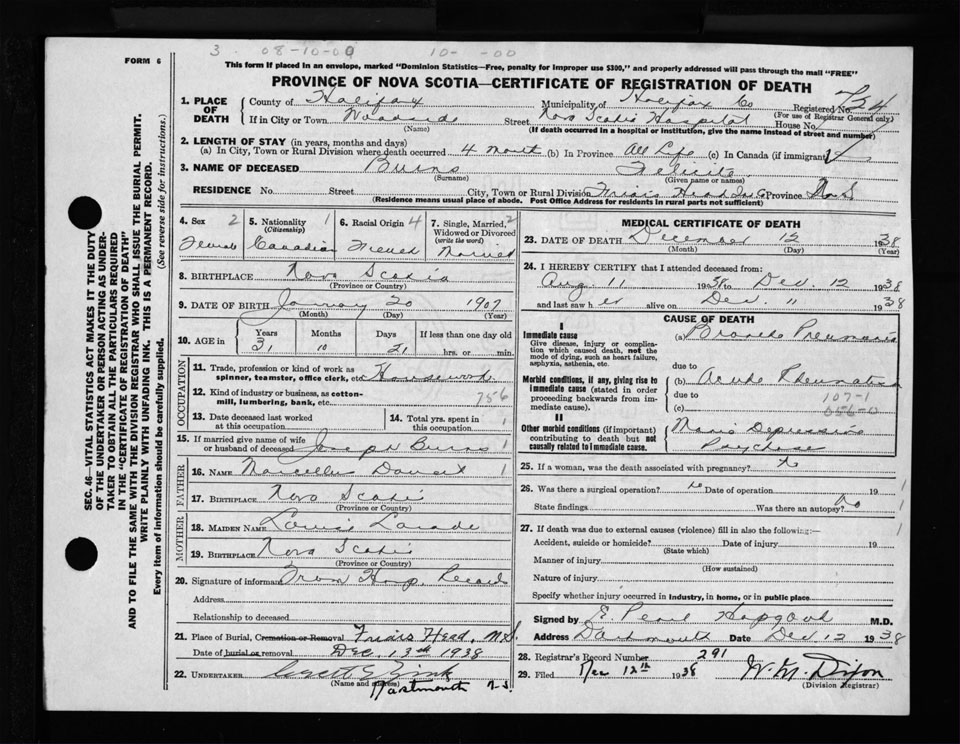 3 08-10-00 10- -00
FORM 6
This form if placed in an envelope, marked "Dominion Statistics—Free, penalty for improper use $300," and properly addressed will pass through the mail "FREE"
PROVINCE OF NOVA SCOTIA—CERTIFICATE OF REGISTRATION OF DEATH
1. PLACE OF DEATH
County of Halifax Municipality of Halifax Co Registered No. 724
(For use of Registrar General only)
If in City or Town Woodside Street Nova Scotia Hospital House No.
(Name) (If death occurred in a hospital or institution, give the name instead of street and number)
2. LENGTH OF STAY (in years, months and days)
(a) In City, Town or Rural Division where death occurred 4 month (b) In Province All Life (c) In Canada (if immigrant)
3. NAME OF DECEASED Burns Felicite
(Surname) (Given name or names)
RESIDENCE No. Street City, Town or Rural Division Friars Head Province N.S
(Residence means usual place of abode. Post Office Address for residents in rural parts not sufficient)
4. Sex 2 Female
5. Nationality 1 (Citizenship) Canadian
6. Racial Origin 4 French
7. Single, Married, Widowed or Divorced 2 (write the word) Married
8. BIRTHPLACE Nova Scotia
(Province or Country)
9. DATE OF BIRTH January 20 1907
(Month) (Day) (Year)
10. AGE in Years 31 Months 10 Days 21 If less than one day old hrs. or min.
OCCUPATION
11. Trade, profession or kind of work as spinner, teamster, office clerk, etc. Housework
12. Kind of industry or business, as cotton-mill, lumbering, bank, etc. 756
13. Date deceased last worked at this occupation
14. Total yrs. spent in this occupation 1
15. If married give name of wife or husband of deceased Joseph Burns 1
FATHER
16. NAME Marcellin 1
17. BIRTHPLACE Nova Scotia
(Province or Country)
MOTHER
18. MAIDEN NAME Larade
19. BIRTHPLACE Nova Scotia
(Province or Country)
20. Signature of informant From Hosp. Record
Address
Relationship to deceased
21. Place of Burial, Cremation or Removal Friars Head, N.S.
Date of burial or removal Dec. 13th 1938
22. UNDERTAKER Zink
(Name and address)
Dartmouth N.S.
MEDICAL CERTIFICATE OF DEATH
23. DATE OF DEATH December 12 1938
(Month) (Day) (Year)
24. I HEREBY CERTIFY that I attended deceased from
Aug. 11 1938 to Dec. 12 1938
and last saw her alive on Dec. 11 1938
CAUSE OF DEATH
I
Immediate cause
Give disease, injury or complication which caused death, not the mode of dying, such as heart failure, asphyxia, asthenia, etc.
(a) Broncho Pneumonia
due to
Morbid conditions, if any, giving rise to immediate cause (stated in order proceeding backwards from immediate cause).
(b) Acute Rheumatism
due to 107-1
(c) 056-0
II
Other morbid conditions (if important) contributing to death but not causally related to immediate cause.
Manic Depressive
Psychosis
25. If a woman, was the death associated with pregnancy? No
26. Was there a surgical operation? no Date of operation 19 1
State findings Was there an autopsy? no
27. If death was due to external causes (violence) fill in also the following:— 1
Accident, suicide or homicide? Date of injury 19
(State which)
Manner of injury
(How sustained)
Nature of injury
Specify whether injury occurred in industry, in home, or in public place
Signed by E Pearl Hopgood M.D.
Address Dartmouth Date Dec 12 1938
28. Registrar's Record Number 291
29. Filed Dec 12th 1938 W. M. Dixon
(Division Registrar)
SEC. 46—VITAL STATISTICS ACT MAKES IT THE DUTY OF THE UNDERTAKER OR PERSON ACTING AS UNDERTAKER TO OBTAIN ALL THE PARTICULARS REQUIRED IN THE "CERTIFICATE OF REGISTRATION OF DEATH" AND TO FILE THE SAME WITH THE DIVISION REGISTRAR WHO SHALL ISSUE THE BURIAL PERMIT.
WRITE PLAINLY WITH UNFADING INK. THIS IS A PERMANENT RECORD.
Every item of information should be carefully supplied. (See reverse side for instructions.)